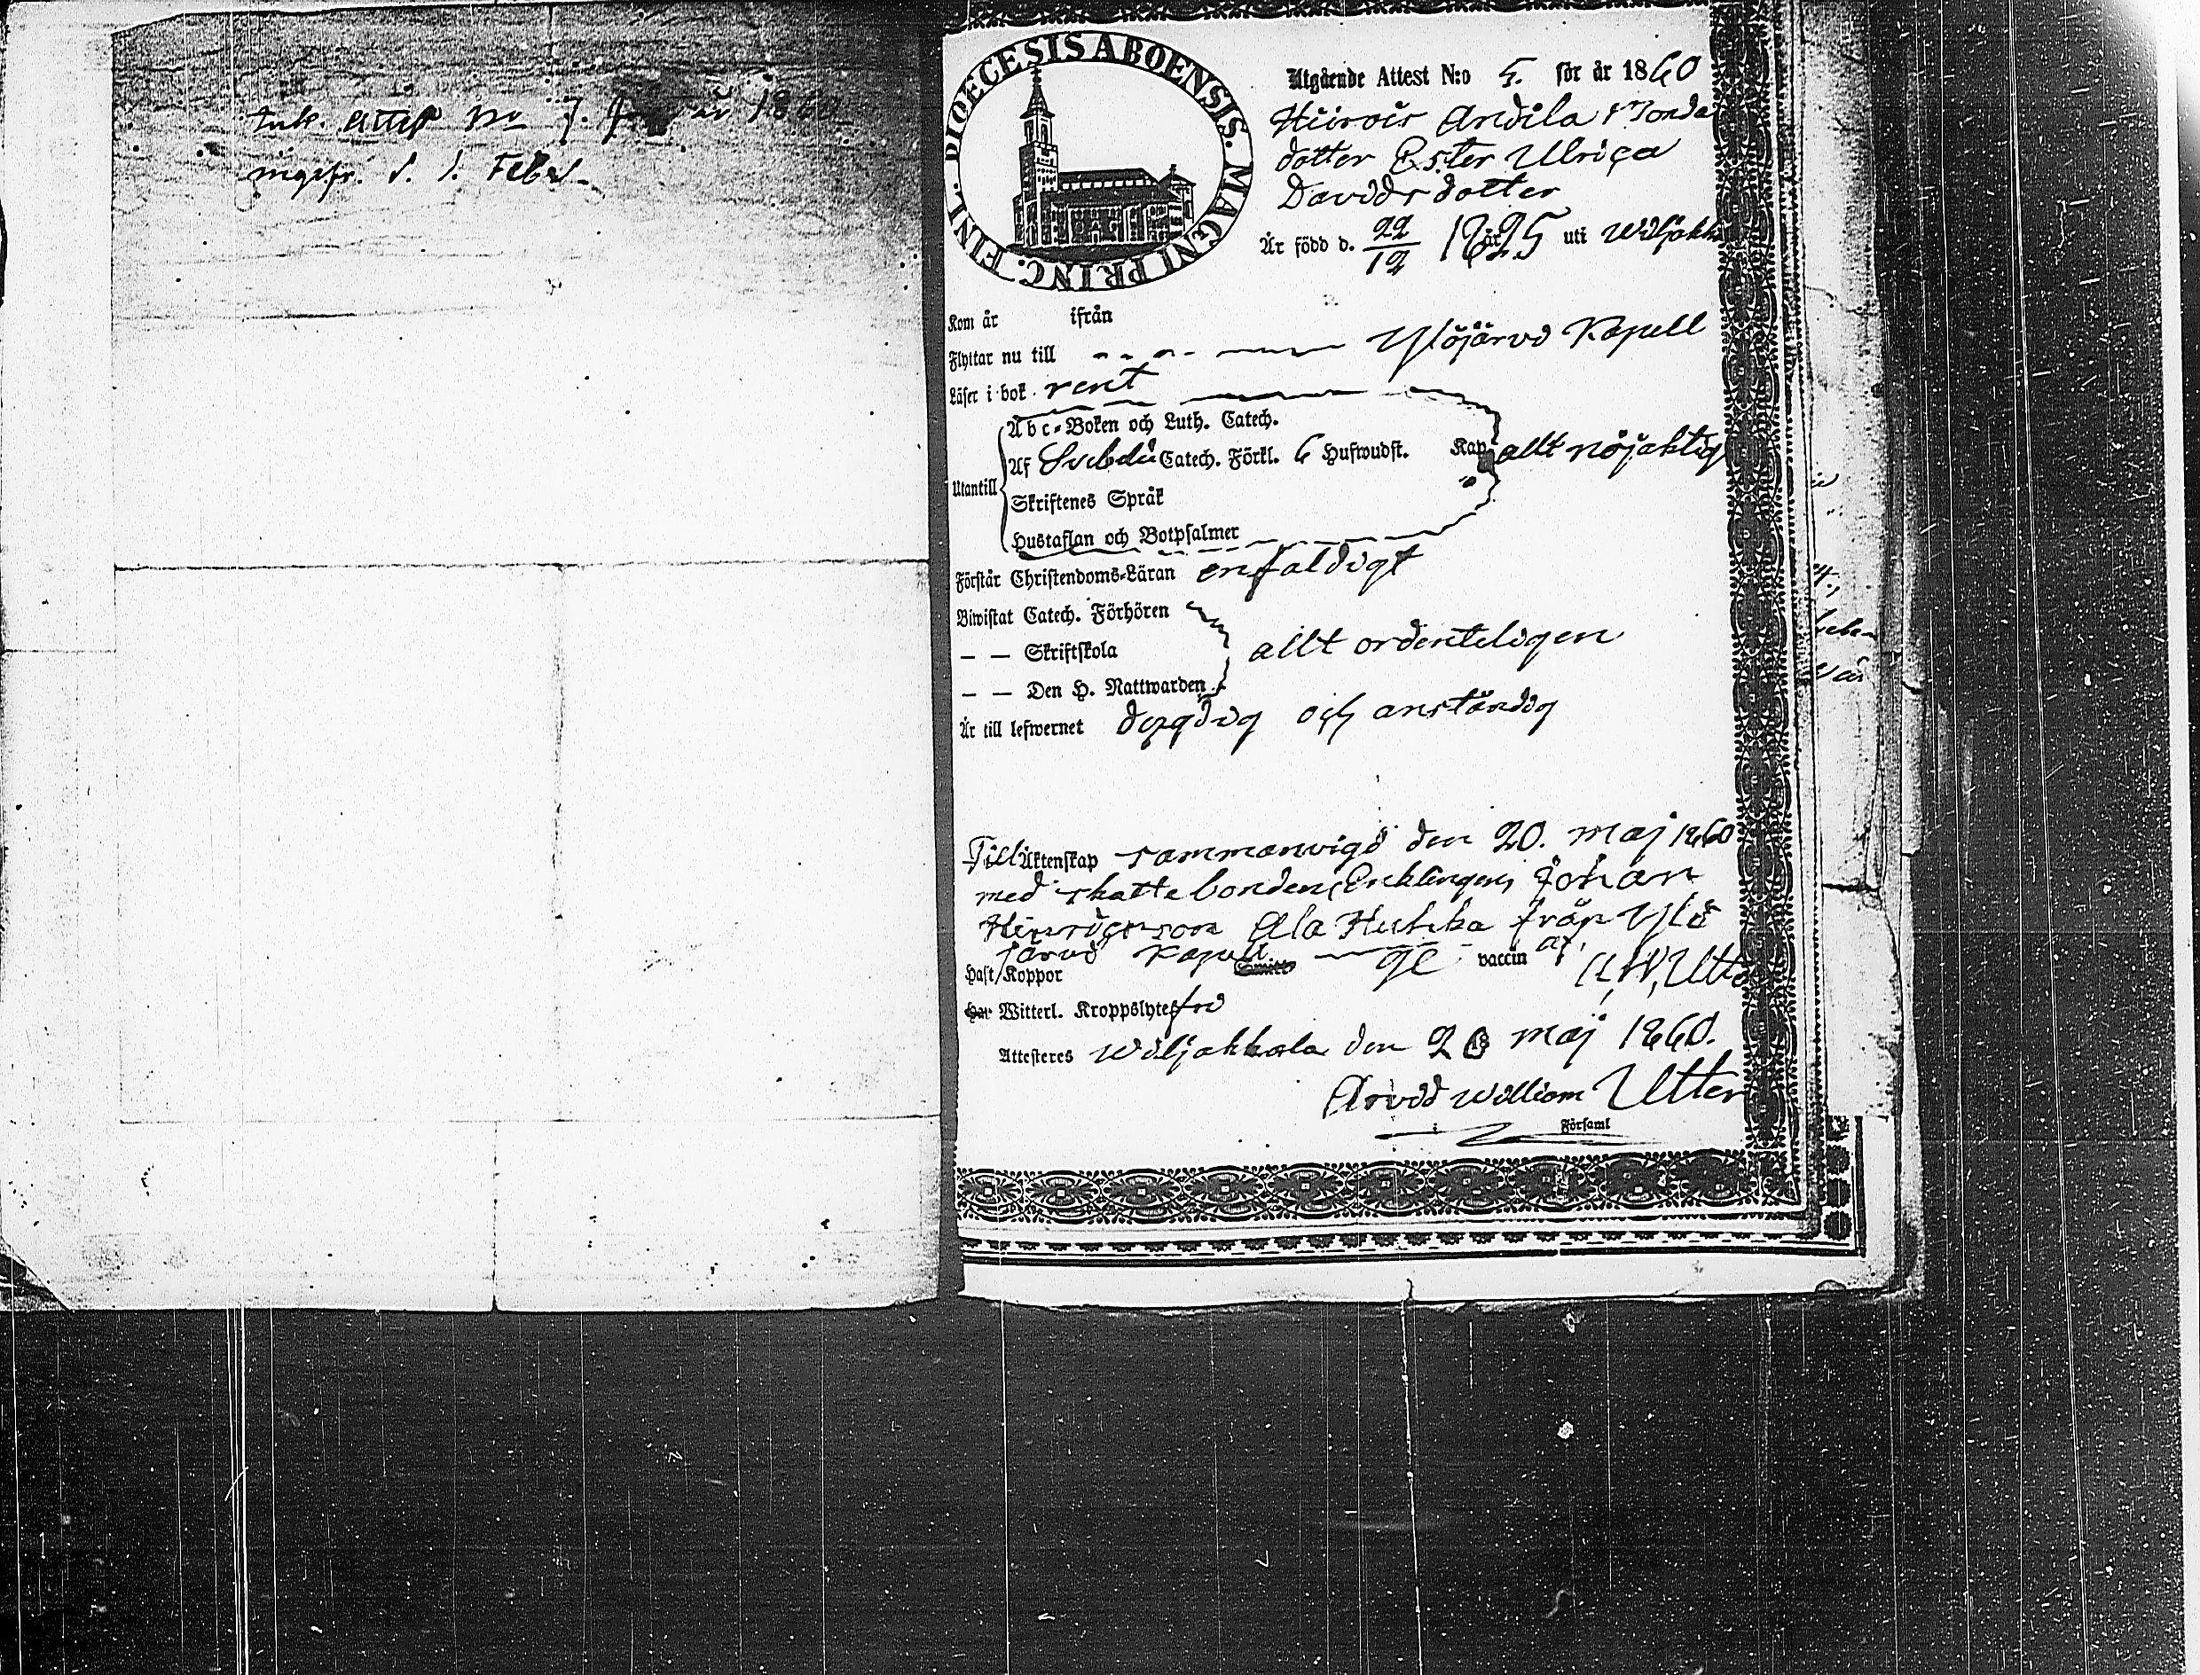 Ink. attest No 7. för år 1860
ingifv. d. 1. Febr.
DIOECESIS ABOENSIS. MAGNI PRINC. FINL.
Utgående Attest N:o 5. för år 1860
Andila Bonde
dotter Ester Ulrica
Davids dotter
Är född d. 22/12 1825 uti Wiljakka
Kom år ifrån
Flyttar nu till Ylöjärvi Kapell
Läser i bok rent
Utantill
Abc-Boken och Luth. Catech.
Af Svebelii Catech. Förkl. 6 Hufwudst. Kap. allt nöjaktigt
Skriftenes Språk
Hustaflan och Botpsalmer
Förstår Christendoms-Läran enfaldigt
Biwistat Catech. Förhören
— — Skriftskola allt ordenteligen
— — Den H. Nattwarden
Är till lefwernet dygdig och anständig
Till Äktenskap sammanvigd den 20. maj 1860
med skattebonden, Encklingen Johan
Hinricsson Ala Huhka från Ylö
järvi Kapell
Haft Koppor vaccin af A, W, Utter
Witterl. Kroppslyte fri
Attesteres Wiljakkala den 20 maj 1860.
Arvid William Utter
Församl